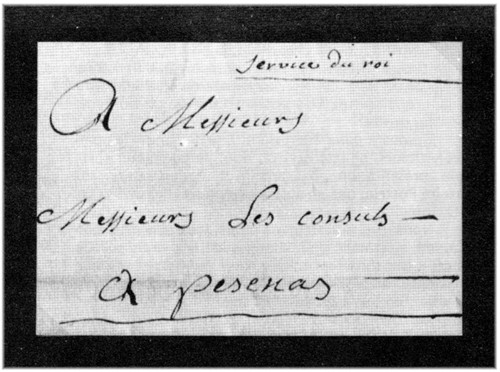 service du roi
A Messieurs
Messieurs Les consuls
A pesenas